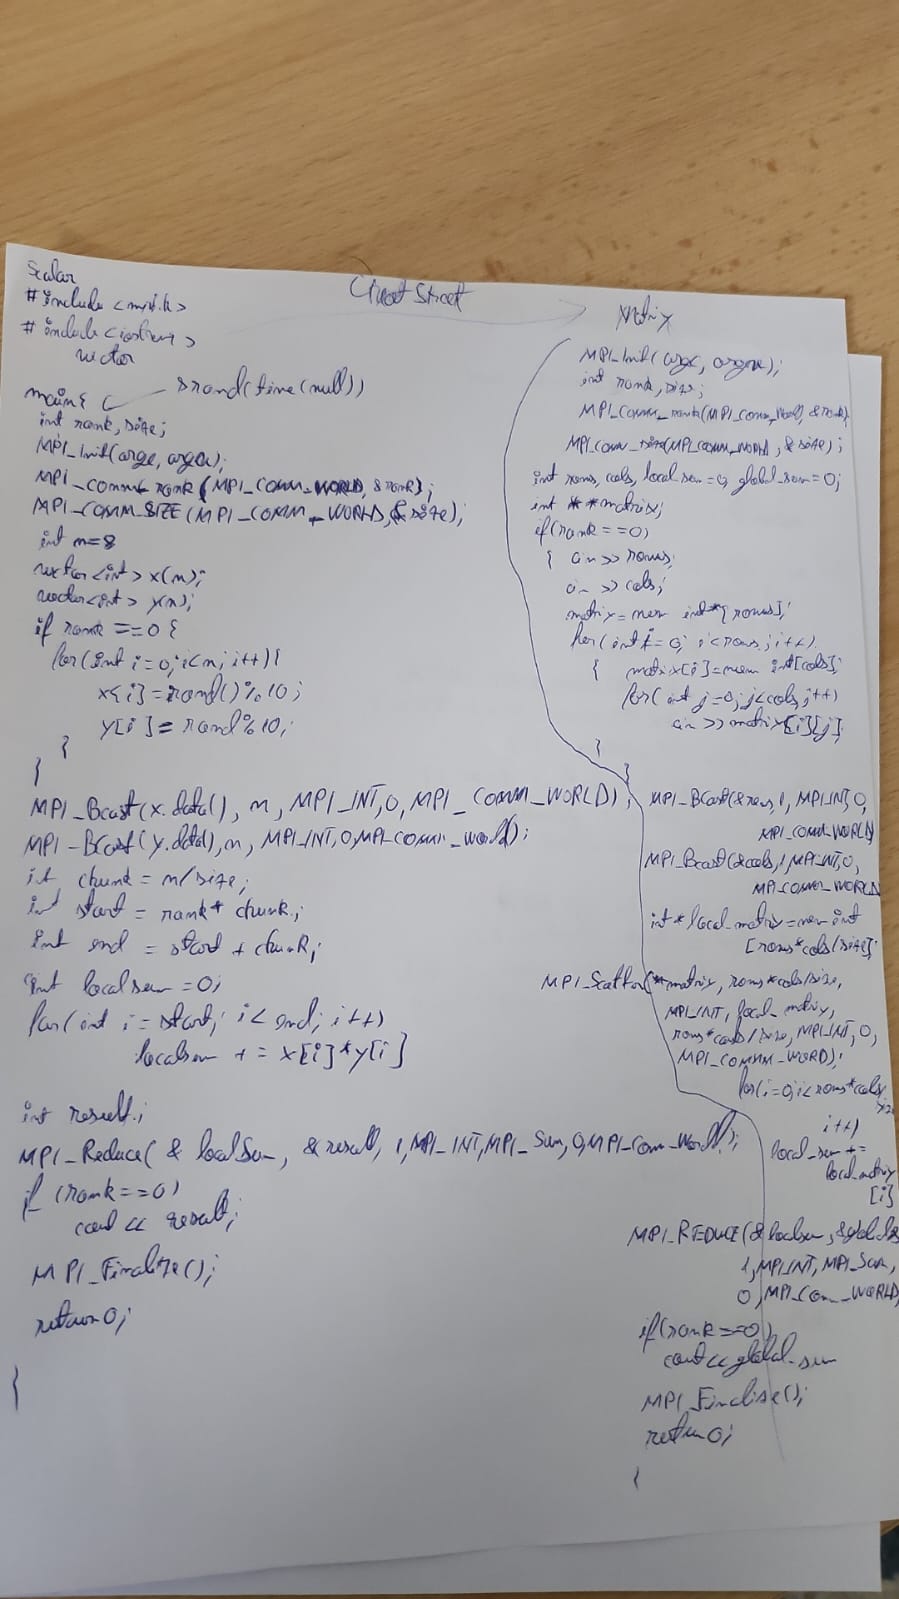 Cheat Street
Scalar
#include <mpi.h>
#include <iostream>
vector
main{ srand(time(null))
int rank, size;
MPI_Init(argc, argv);
MPI_Comm_rank(MPI_COMM_WORLD, &rank);
MPI_COMM_SIZE(MPI_COMM_WORLD, &size);
int n=8
vector<int> x(n);
vector<int> y(n);
if rank ==0 {
for(int i=0;i<n;i++){
x[i]=rand()%10;
y[i]=rand%10;
}
}
MPI_Bcast(x.data(), n, MPI_INT,0, MPI_COMM_WORLD);
MPI_Bcast(y.data),n, MPI_INT,0,MPI_comm_world);
int chunk = n/size;
int start = rank* chunk;
int end = start + chunk;
int localsum =0;
for(int i=start; i< end; i++)
localsum += x[i]*y[i]
int result;
MPI_Reduce( & localSum, &result, 1,MPI_INT,MPI_Sum,0,MPI_Com_World);
if (rank==0)
cout << result;
MPI_Finalize();
return 0;
}
Matrix
MPI_Init(argc, argv);
int rank, size;
MPI_Comm_rank(MPI_Comm_World, &rank);
MPI_Comm_size(MPI_COMM_WORLD, &size);
int rows, cols, local_sum=0, global_sum=0;
int **matrix;
if(rank==0)
{ cin >> rows;
cin >> cols;
matrix=new int*[rows];
for(int i=0; i<rows; i++)
{ matrix[i]=new int[cols];
for(int j=0;j<cols;j++)
cin >> matrix[i][j];
}
}
MPI_Bcast(&rows, 1, MPI_INT,0,
MPI_COMM_WORLD)
MPI_Bcast(&cols,1,MPI_INT,0,
MPI_COMM_WORLD
int* local_matrix=new int
[rows*cols/size];
MPI_Scatter(**matrix, rows*cols/size,
MPI_INT, local_matrix,
rows*cols/size, MPI_INT,0,
MPI_COMMM_WORD);
for(i=0;i<rows*cols/
size
i++)
local_sum +=
local_matrix
[i]
MPI_REDUCE(&localsum,
1,MPI_INT, MPI_Sum,
0,MPI_Com_WORLD,
if(rank==0)
cout<<global_sum
MPI_Finalise();
return 0;
}